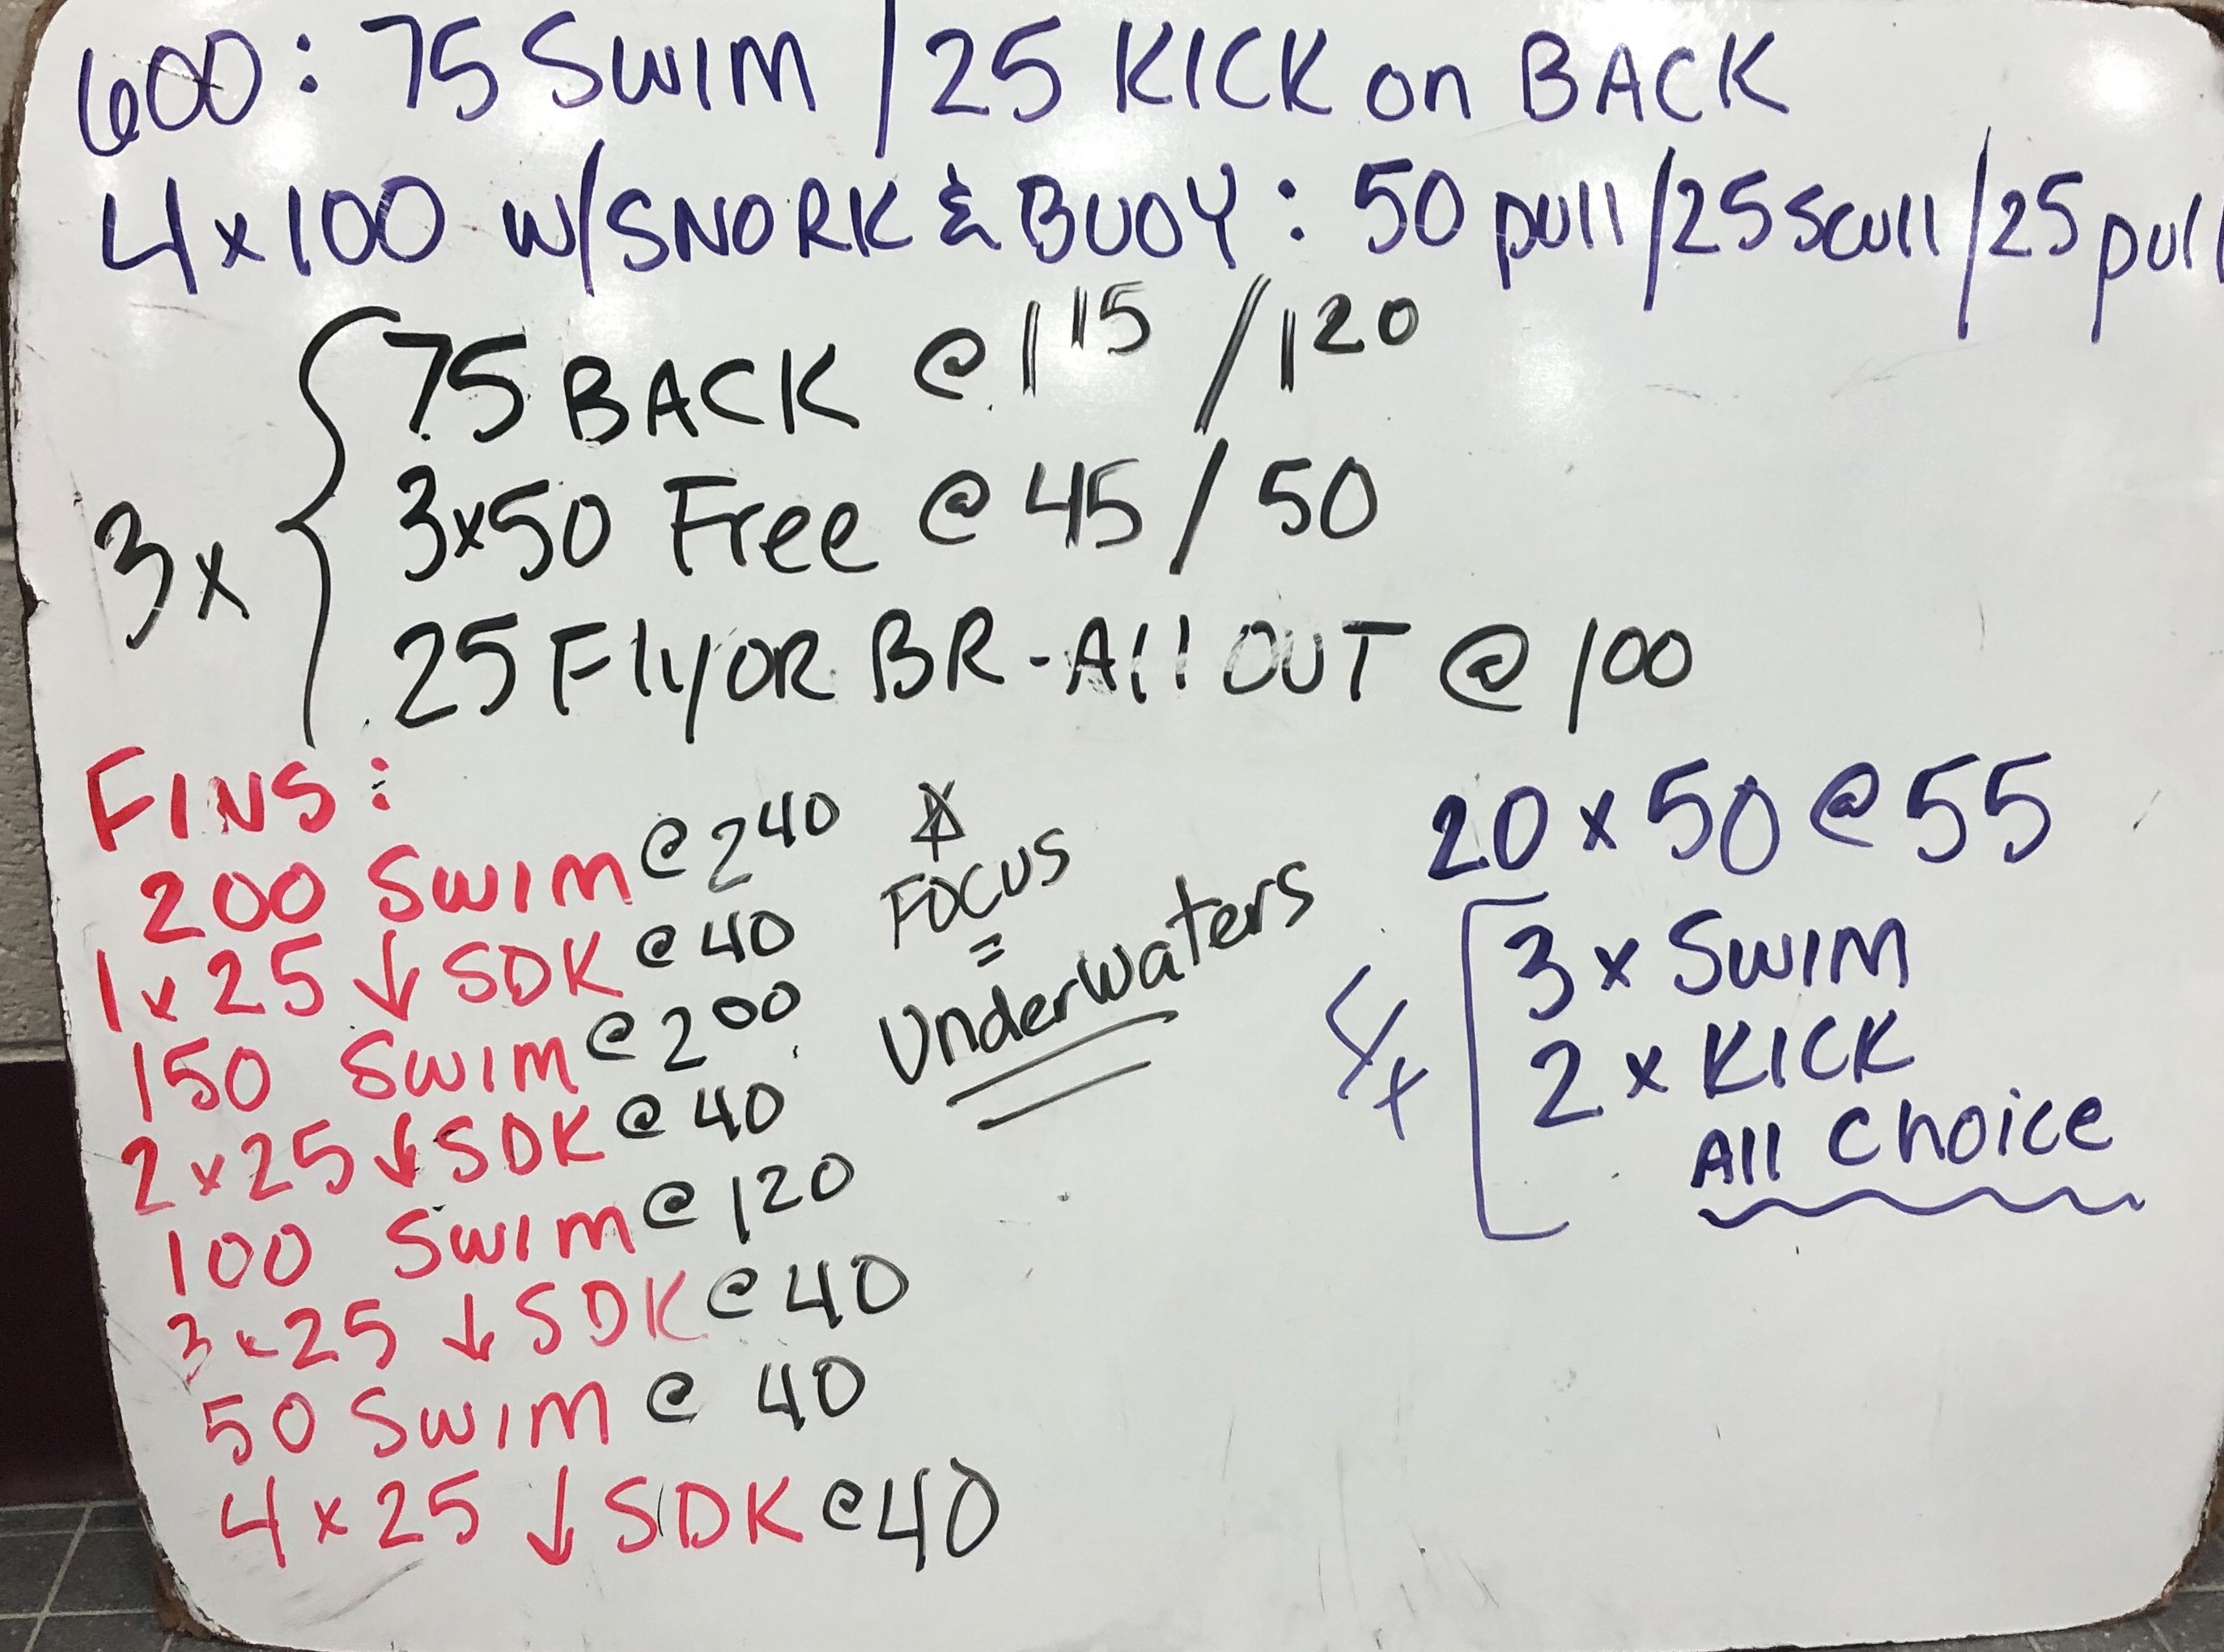 600: 75 SWIM / 25 KICK on BACK
4x100 w/SNORK & BUOY: 50 pull/25 scull/25 pull
3x
75 BACK @ 1 15 / 1 20
3x50 Free @ 45 / 50
25 Fly OR BR - All OUT @ 1 00
FINS:
200 SWIM @ 2 40
1x25 ↓ SDK @ 40
150 SWIM @ 2 00
2x25 ↓ SDK @ 40
100 SWIM @ 1 20
3x25 ↓ SDK @ 40
50 SWIM @ 40
4x25 ↓ SDK @ 40
☆
FOCUS
=
Underwaters
20 x 50 @ 55
4x
3x SWIM
2x KICK
All Choice